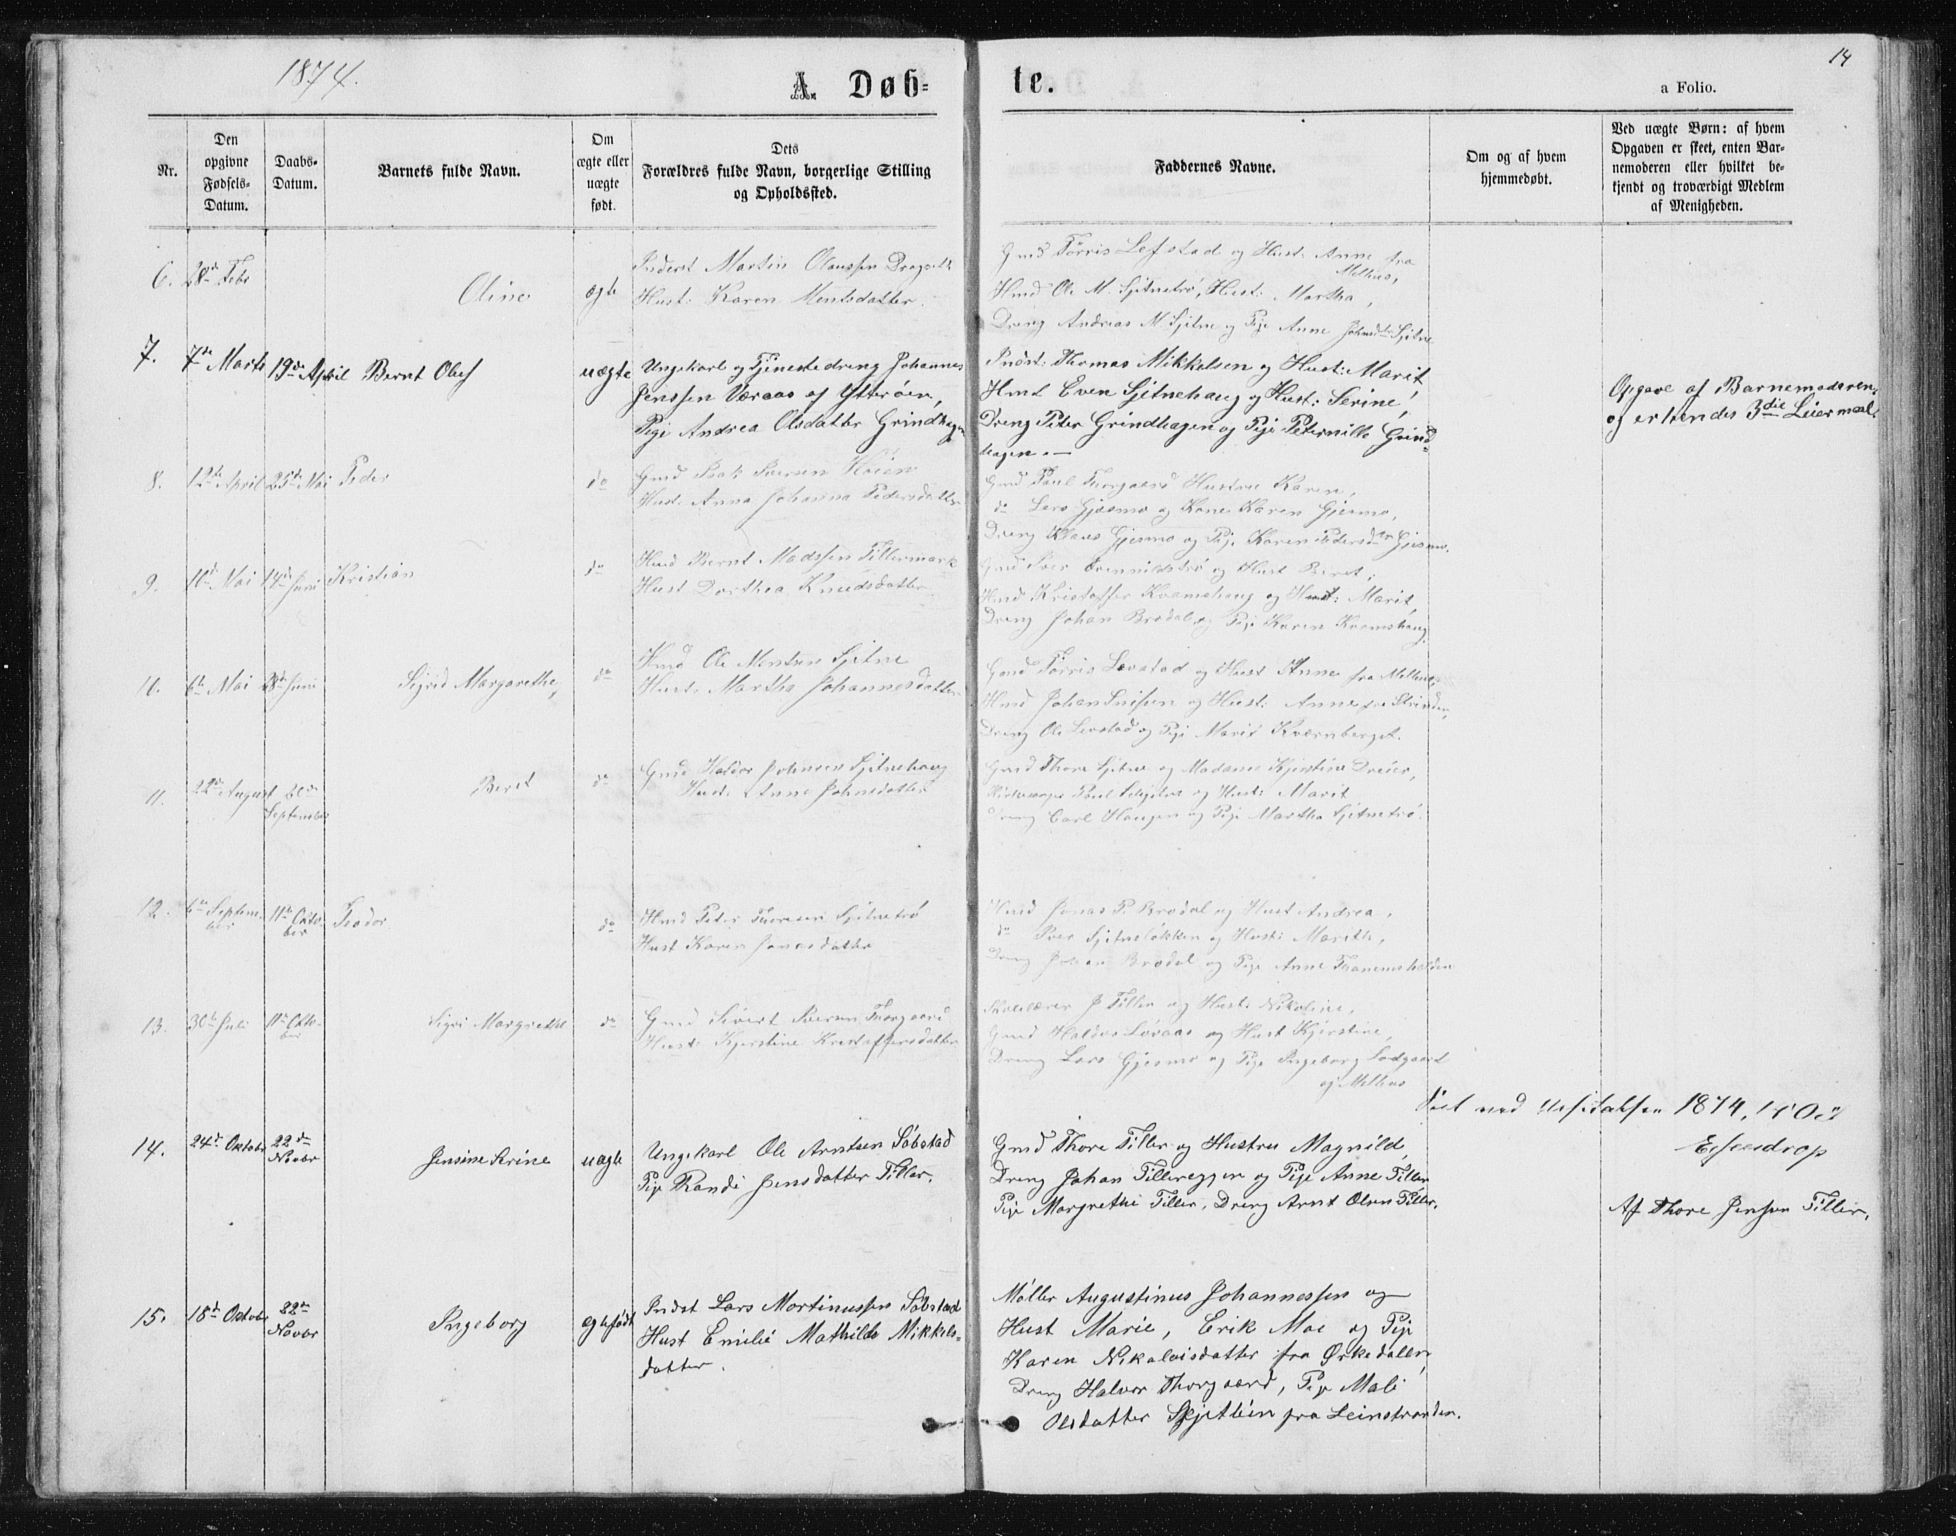 1874.
14
A. Døb-
te.
a Folio.
Nr.
Den
opgivne
Fødsels-
Datum.
Daabs-
Datum.
Barnets fulde Navn.
Om
ægte eller
uægte
født.
Dets
Forældres fulde Navn, borgerlige Stilling
og Opholdssted.
Faddernes Navne.
Om og af hvem
hjemmedøbt.
Ved uægte Børn: af hvem
Opgaven er skeet, enten Bar-
nemoderen eller hvilket be-
kjendt og troværdigt Medlem
af Menigheden.
6. 28de Febr
Oline
ægte
Inderst Martin Olaussen
Hust: Karen Mentsdatter.
Gmd Tørris Lefstad og Hust: Anne fra
Melhus,
Hmd Ole M. Sjetnetrø, Hust: Martha,
Dreng Andreas M. Sjetne og Pige Anne Sjetne
7. 7de Marts 19de April Bernt Oluf
uægte
Ungekarl og Tjenestedreng Johannes
Jenssen Væraas af Ytterøen,
Pige Andrea Olsdatter Grindhagen
Indst: Thomas Mikkelsen og Hust: Marit,
Hmd Even Sjetnehaug og Hust: Serine,
Dreng Peter Grindhagen og Pige Peternille Grind-
hagen.
Opgave af Barnemoderen,
og erkendes 3die Leiermaal.
8. 12te April 25de Mai Peder
do
Gmd Isak Iversen
Hust: Anna Johanna Pedersdatter
Gmd Paul Thorgaard Hustru Karen,
do Lars Gjesmo og Kone Karen Gjesmo,
Dreng Klaus Gjesmo og Pige Karen Pedersdtr Gjesmo.
9. 11te Mai 14de Juni Kristian
do
Hmd Bernt Madssen Tillermark
Hust Dorthea Knudsdatter
Gmd Iver og Hust Beret,
Hmd Kristoffer Kvamshaug og Hust: Marit,
Dreng Johan Brødal og Pige Karen Kvamshaug.
10. 6te Mai 28de Juni
Sigrid Margarethe,
do
Hmd Ole Mentsen Sjetne
Hust: Martha Johannesdatter
Gmd Tørris Levstad og Hust Anne fra Melhus,
Hmd Johan og Hust: Anne fra Strinden,
Dreng Ole Levstad og Pige Marit Kværnberget.
11. 22de August
September
Beret
do
Gmd Haldor Johnsen Sjetnehaug
Hust: Anne Johnsdatter
Gmd Thore Sjetne og Madame Kjerstine Dreier,
Paul og Hust: Marit
Dreng Carl Haugen og Pige Martha Sjetnetrø.
12. 6te Septem-
ber
11te Okto-
ber
Teodor
do
Hmd Peter Thoresen Sjetnetrø
Hust Karen Jonasdatter
Hmd Jonas P. Brødal og Hust Andrea,
do Iver Sjetneløkken og Hust: Marith,
Dreng Johan Brødal og Pige Anne
13. 30te Juli 11te Okto-
ber
Sigri Margrethe
do
Gmd Sivert Iversen Thorgaard
Hust: Kjerstine Krestoffersdatter
Skolelærer P Tiller og Hust: Nikoline,
Gmd Haldor Løvaas og Hust Kjerstine,
Dreng Lars Gjesmo og Pige Ingeborg
af Melhus
Seet ved Visitatsen 1874,
14. 24de Oktobr 22de
Novbr
Jensine Serine
uægte
Ungekarl Ole Arntsen Søbstad
Pige Randi Jensdatter Tiller.
Gmd Thore Tiller og Hustru Magnild,
Dreng Johan Tillereggen og Pige Anne Tiller
Pige Margrethe Tiller, Dreng Arnt Olsen Tiller.
Af Thore Jensen Tiller,
15. 18de Oktobr 22de
Novbr
Ingeborg
ægtefødt
Indst Lars Mortinussen Søbstad
Hust Emilie Mathilde Mikkels-
datter.
Møller Augustinus Johannessen og
Hust Marie, Erik Moe og Pige
Karen Nikolaisdatter fra Ørkedalen,
Dreng Halvor Thorgaard, Pige Mali
Olsdatter Skjetlein fra Leinstranden.